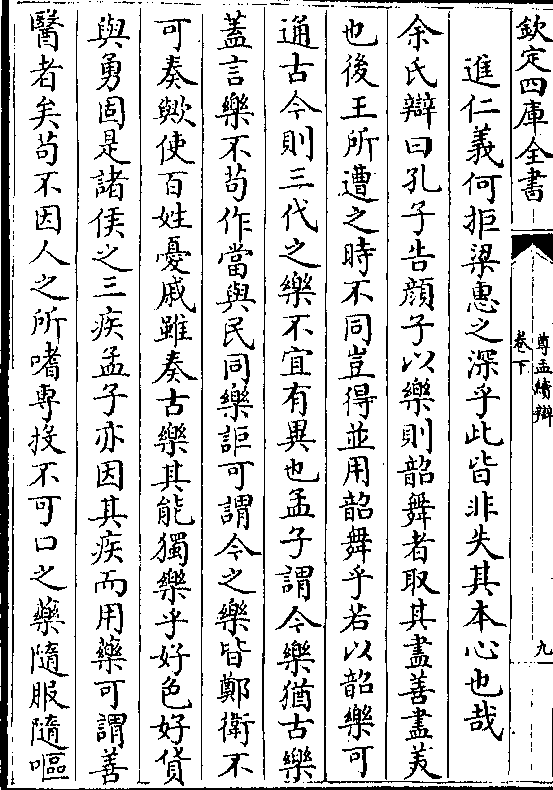 欽定四庫全書
尊孟續辯
卷下
九
進仁義何拒梁惠之深乎此皆非失其本心也哉
余氏辯曰孔子告顔子以樂則韶舞者取其盡善盡美
也後王所遭之時不同豈得並用韶舞乎若以韶樂可
通古今則三代之樂不宜有異也孟子謂今樂猶古樂
蓋言樂不苟作當與民同樂詎可謂今之樂皆鄭衛不
可奏歟使百姓憂戚雖奏古樂其能獨樂乎好色好貨
與勇固是諸侯之三疾孟子亦因其疾而用藥可謂善
醫者矣苟不因人之所嗜專投不可口之藥隨服隨嘔